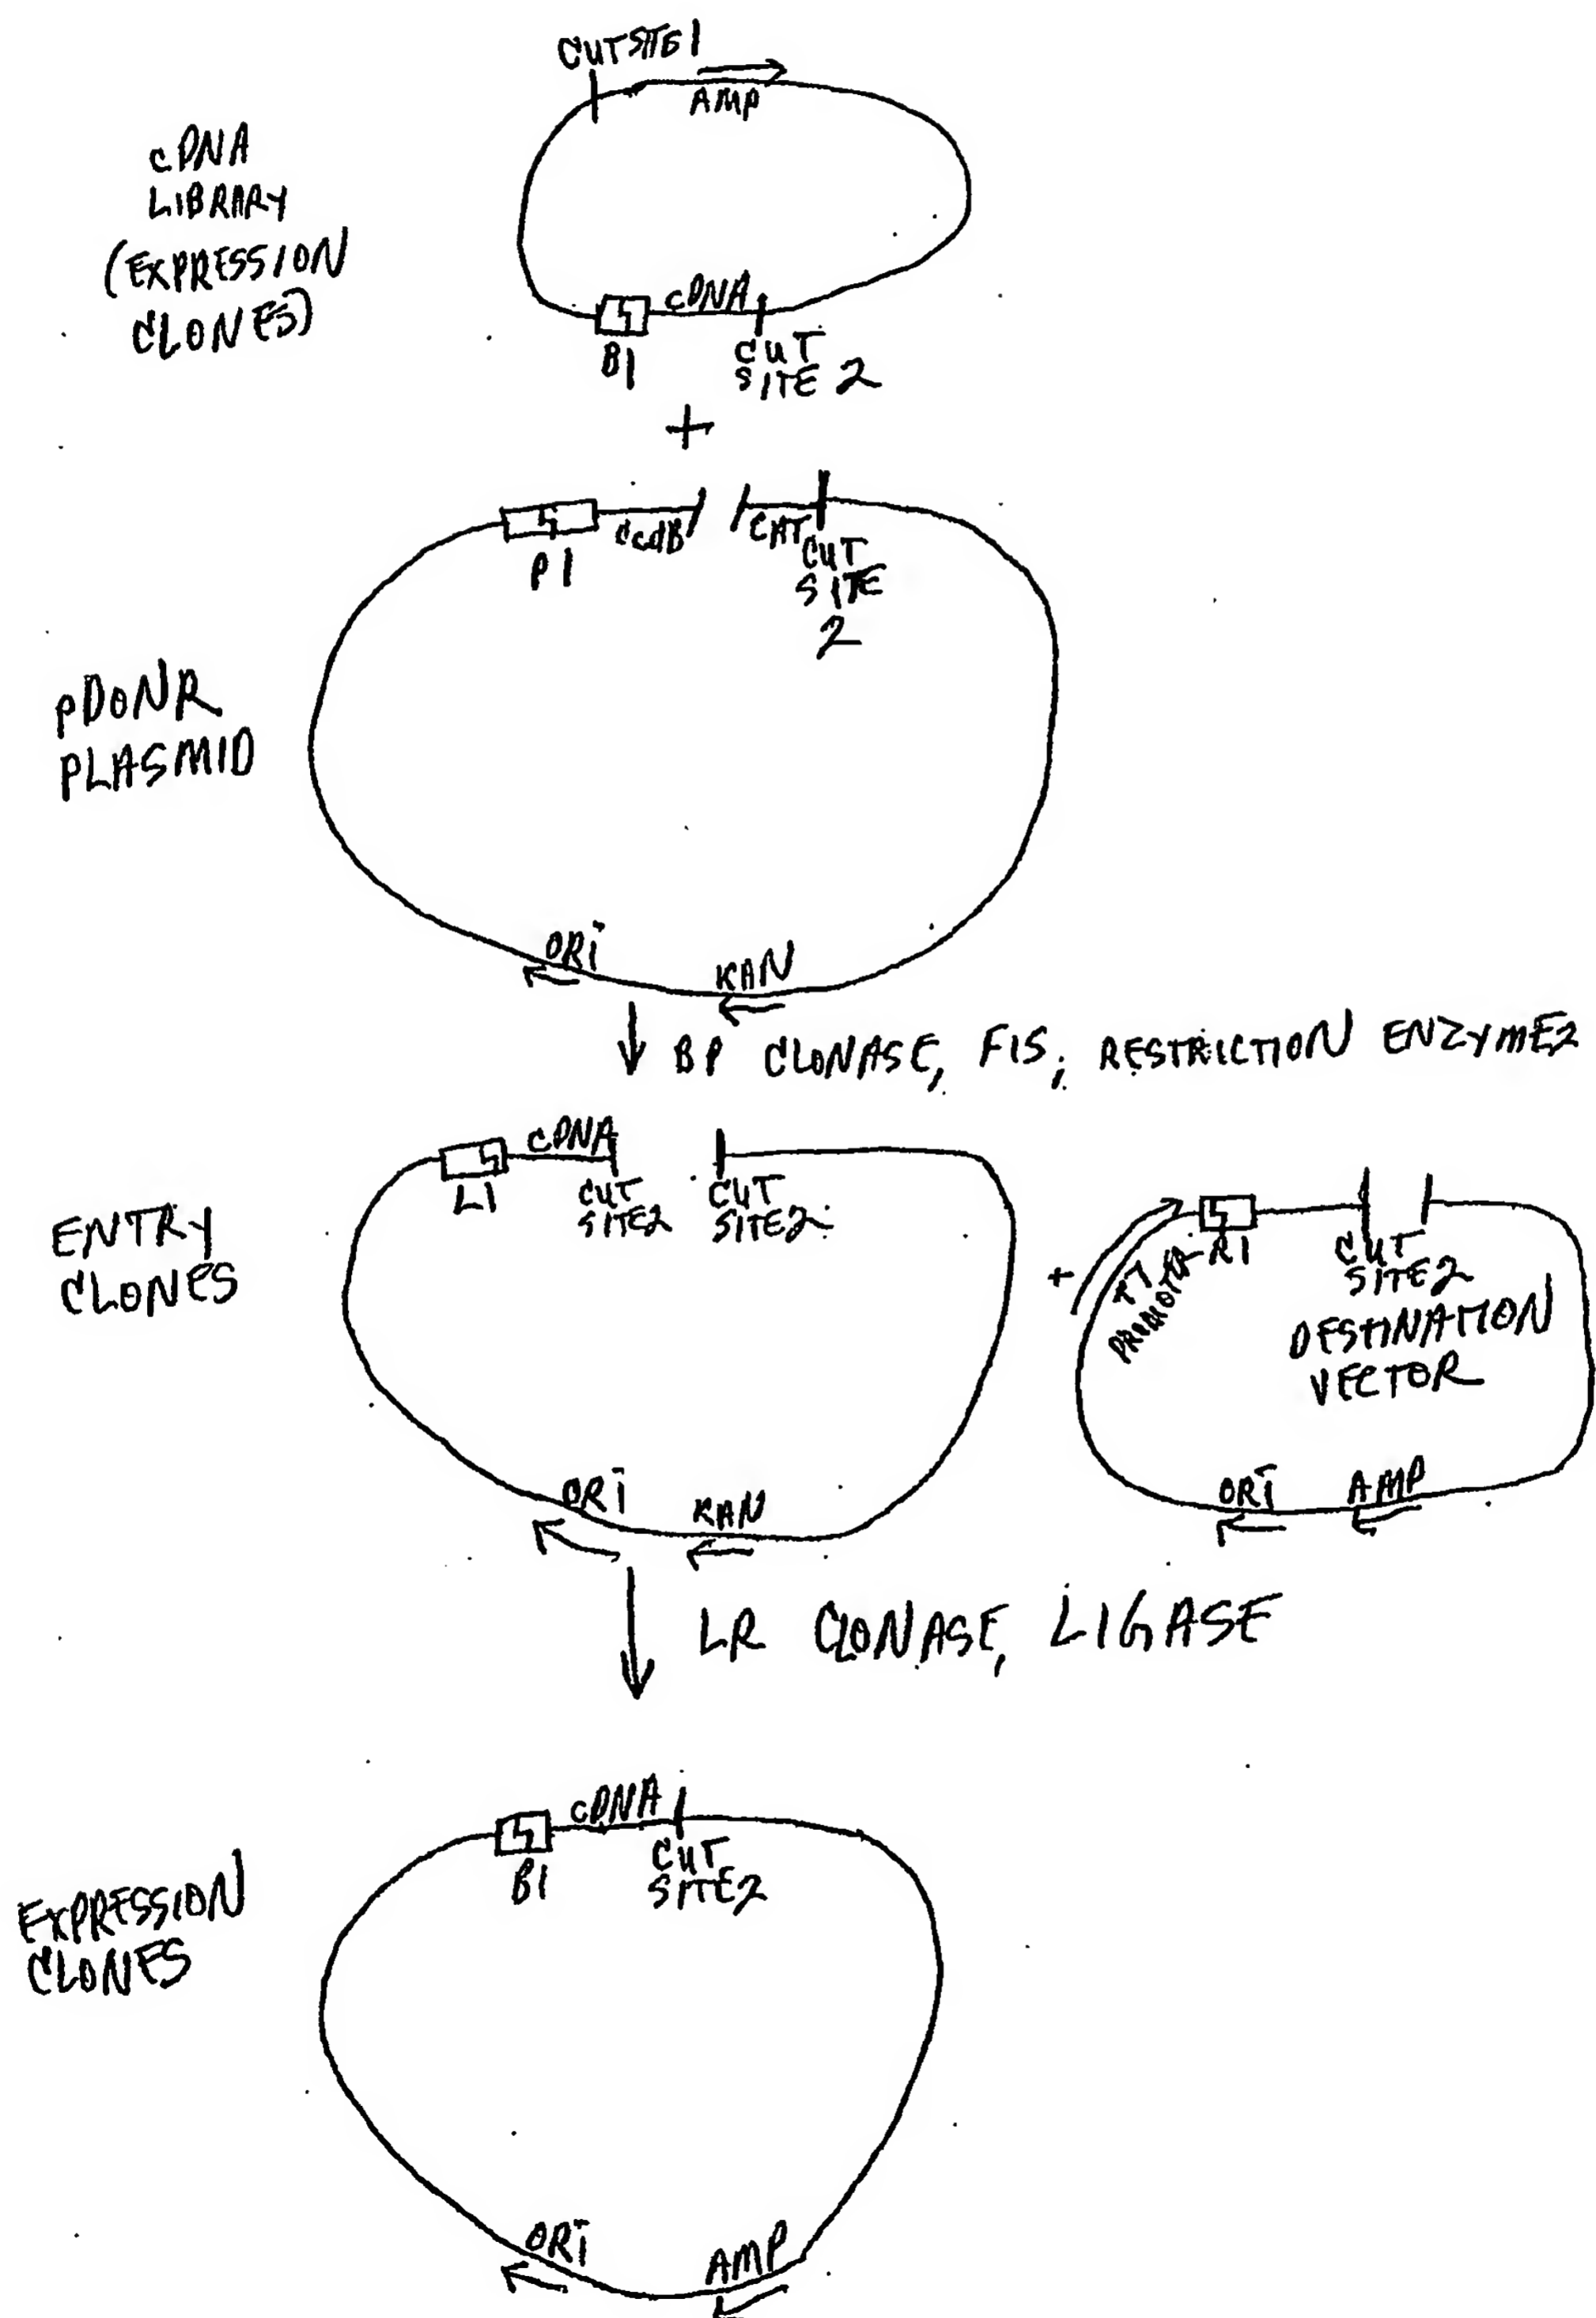 CUT SITE 1
AMP
cDNA
LIBRARY
(EXPRESSION
CLONES)
cDNA
B1
CUT
SITE 2
+
P1
CcdB
CAT
CUT
SITE
2
pDONR
PLASMID
ORI
KAN
BP CLONASE, FIS, RESTRICTION ENZYME2
ENTRY
CLONES
cDNA
L1
CUT
SITE2
CUT
SITE2
ORI
KAN
+
PROMOTER
R1
CUT
SITE2
DESTINATION
VECTOR
ORI
AMP
LR CLONASE, LIGASE
EXPRESSION
CLONES
cDNA
B1
CUT
SITE2
ORI
AMP